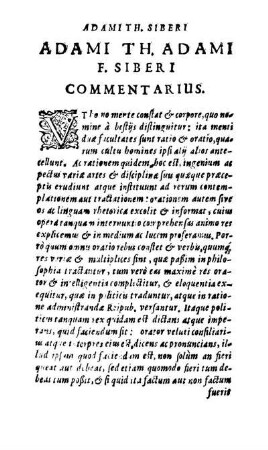 ADAMI TH. SIBERI
ADAMI TH. ADAMI
F. SIBERI
COMMENTARIUS.
VT homo mente constat & corpore, quo no-
mine à bestijs distinguitur: ita menti
duæ facultates sunt ratio & oratio, qua-
rum cultu homines ipsi alij alios ante-
cellunt. Ac rationem quidem, hoc est, ingenium as
pectus variæ artes & disciplinæ suis quæque præce-
ptis erudiunt atque instituunt ad rerum contem-
plationem aut tractationem: orationem autem sive
os ac linguam rhetorica excolit & informat, cuius
opera tanquam interpuncti comprehensas animo res
explicemus & in medium ac lucem proferamus. Por-
rò quum omnis oratio rebus constet & verbis, quumq́;
res variæ & multiplices sint, quæ passim in philo-
sophia tractantur, tum verò eas maximè res ora-
tor & intelligentia complectitur, & eloquentia ex-
equitur, quæ in politicis traduntur, atque in ratio-
ne administrandæ Reipub. versantur. Itaque poli-
ticus tanquam rex quidam est dictans atque impe-
rans, quid faciendum sit: orator veluti consiliari-
us atque interpres eius est, dicens ac pronuncians, il-
lud ipsum quod faciendum est, non solùm an fieri
queat aut debeat, sed etiam quomodo fieri tum de-
beat tum possit, & si quid ita factum aut non factum
fuerit